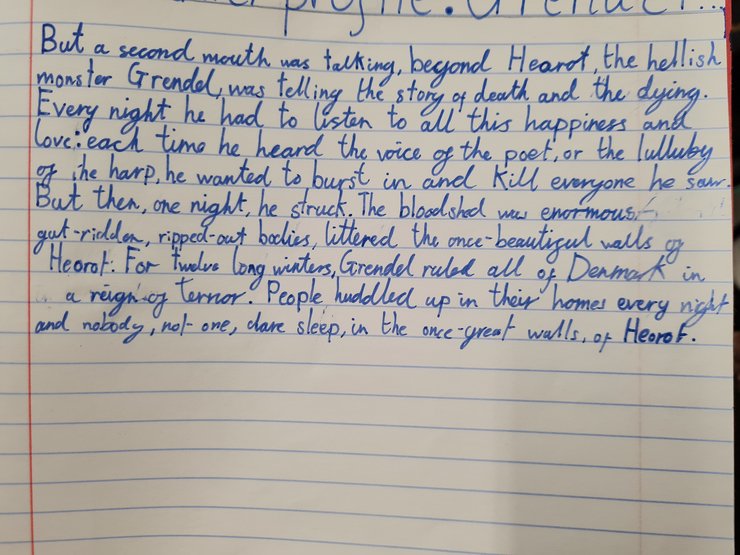 profile: Grendel...
But a second mouth was talking, beyond Hearot, the hellish
monster Grendel, was telling the story of death and the dying.
Every night he had to listen to all this happiness and
love: each time he heard the voice of the poet, or the lulluby
of the harp, he wanted to burst in and kill everyone he saw.
But then, one night, he struck. The bloodshed was enormous:
gut-ridden, ripped-out bodies, littered the once-beautiful walls of
Heorot: For twelve long winters, Grendel ruled all of Denmark in
a reign of terror. People huddled up in their homes every night
and nobody, not one, dare sleep, in the once-great walls, of Heorot.